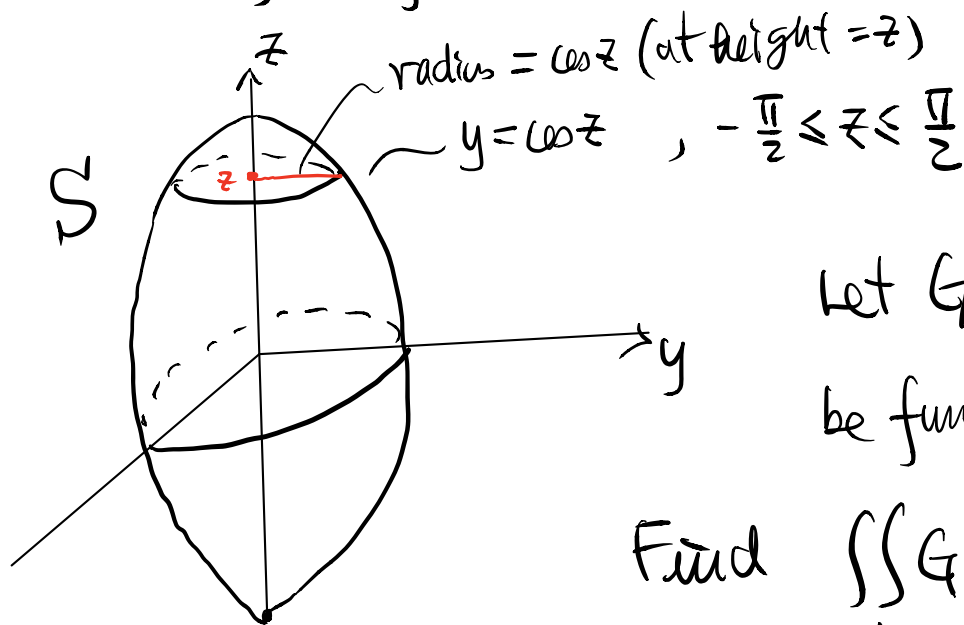 z
radius = cos z (at height = z)
y = cos z , - π/2 ≤ z ≤ π/2
z
S
Let G
y
be fun
Find ∬ G